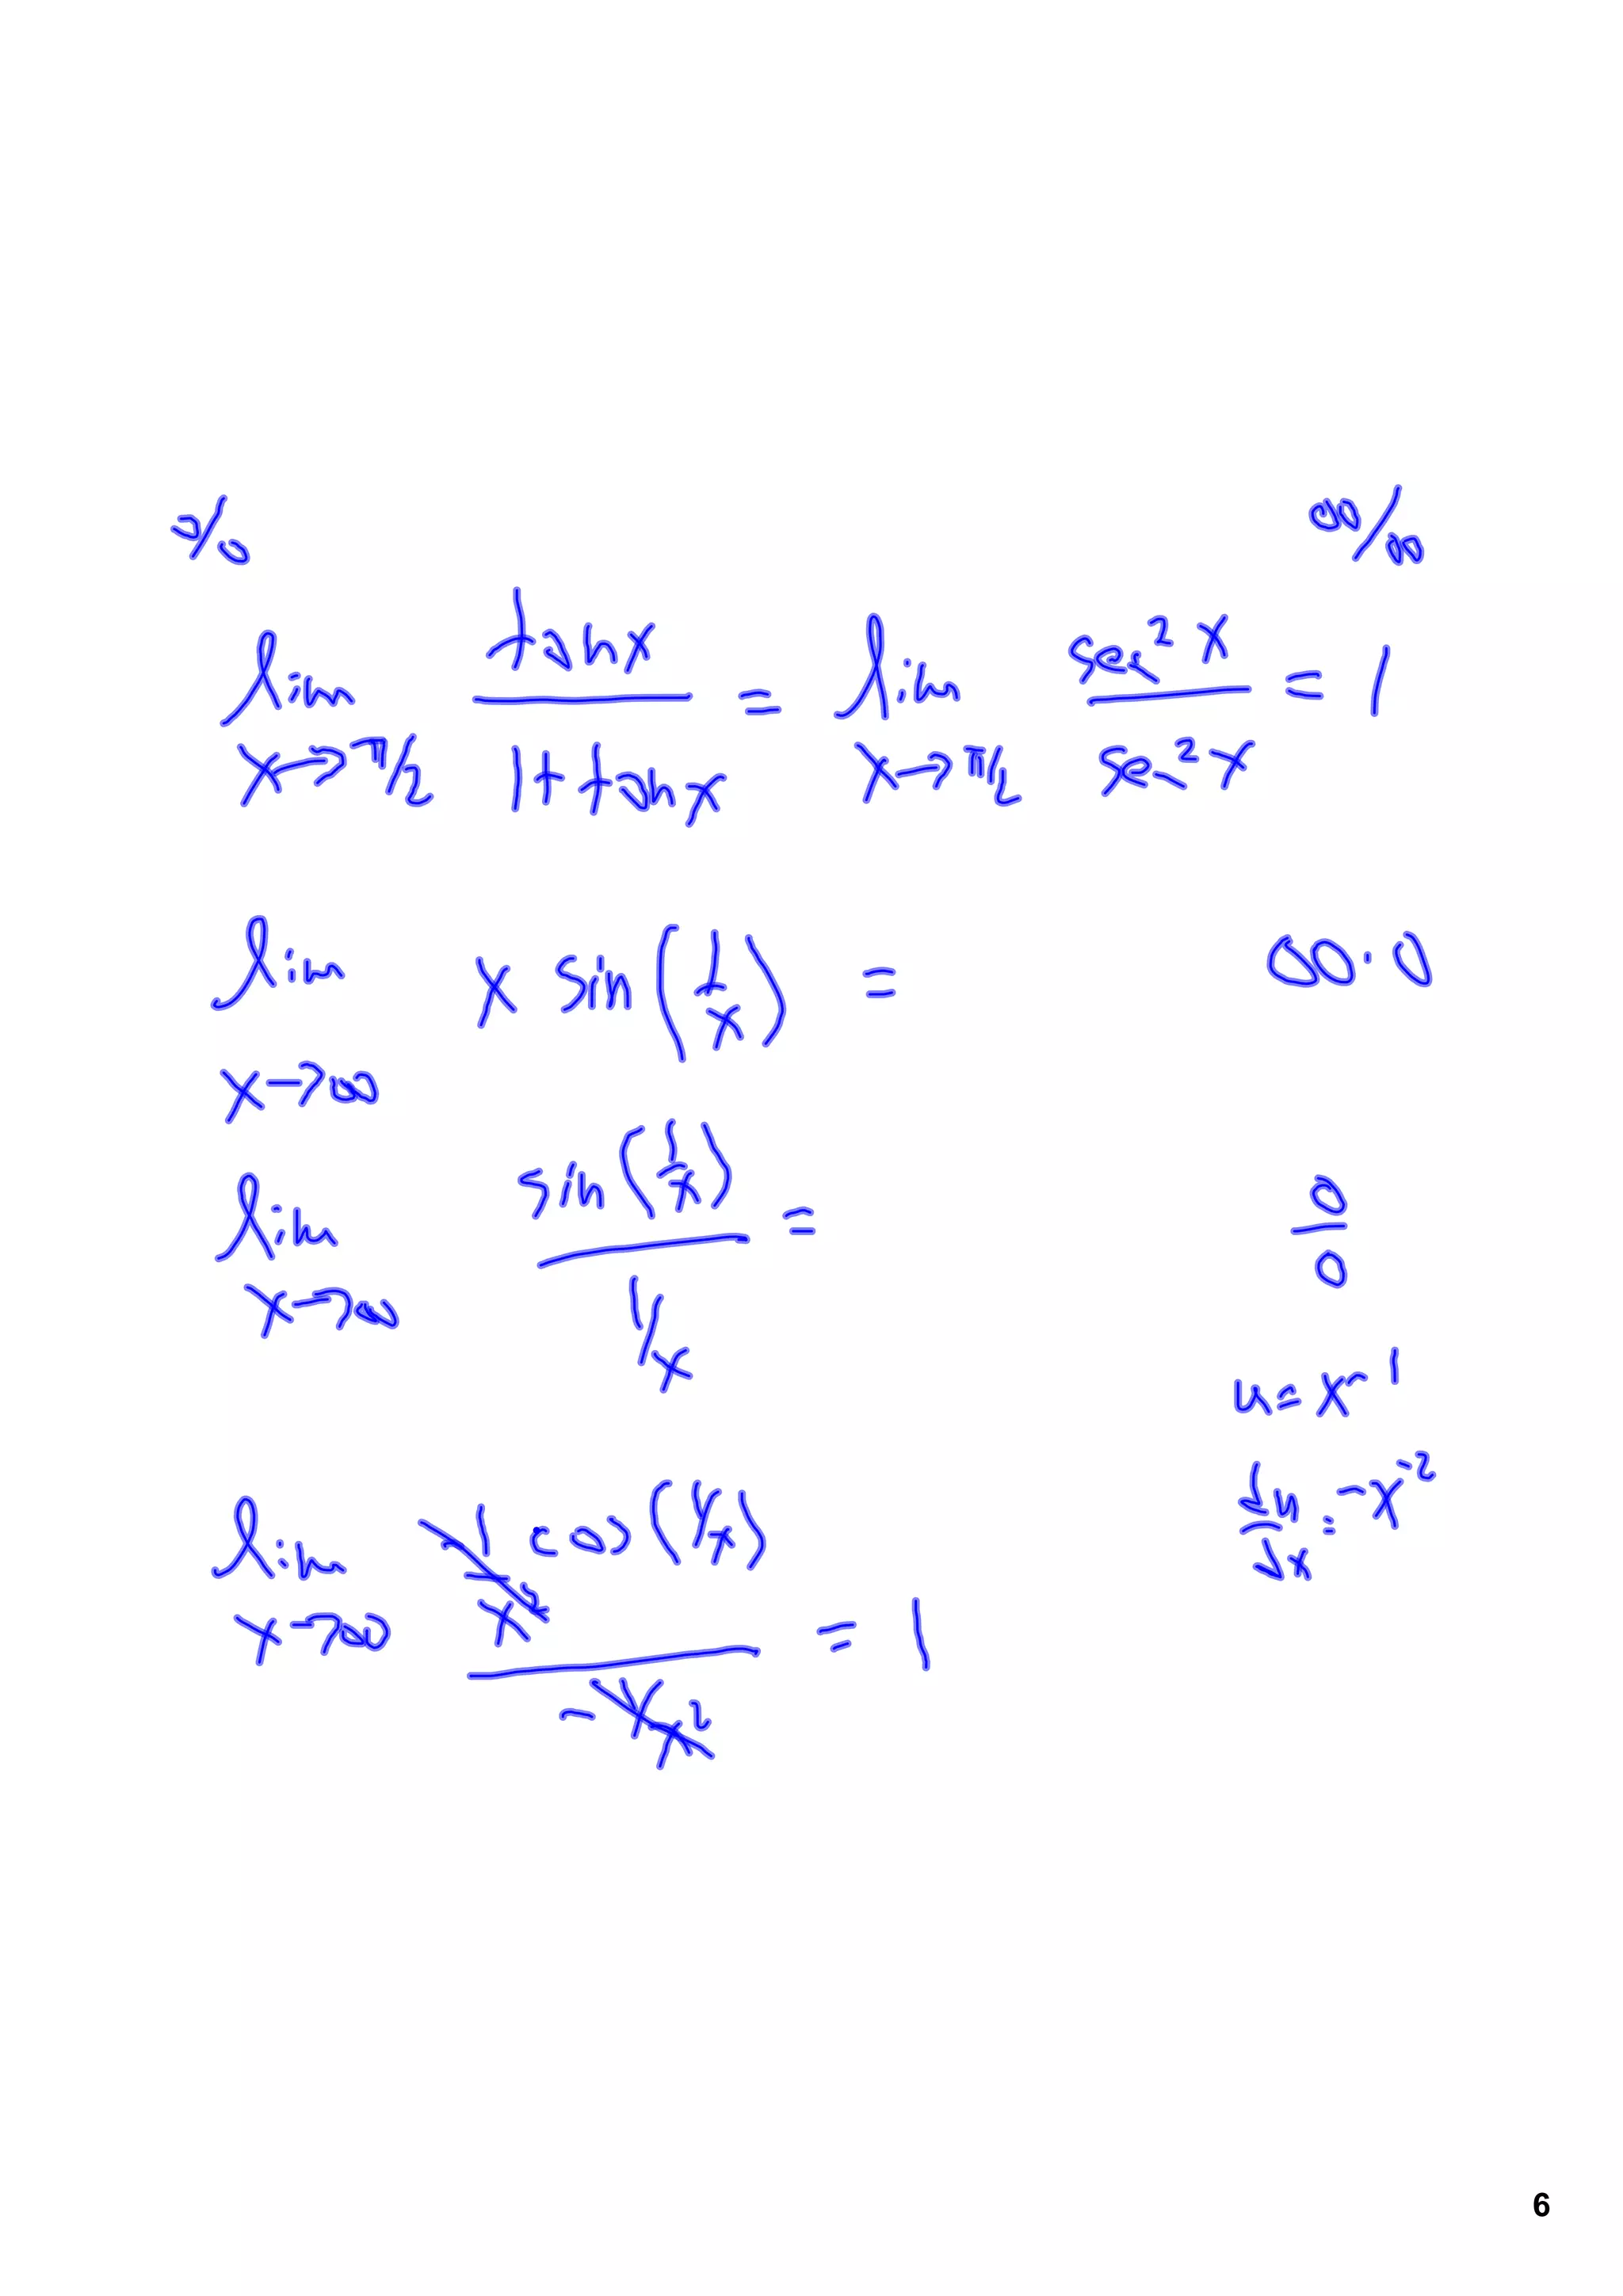 a/0 ∞/∞
lim x→π/2 tan x / 1 + tan x = lim x→π/2 sec² x / sec² x = 1
lim x→∞ x sin(1/x) = ∞·0
lim x→∞ sin(1/x) / 1/x = 0/0
u = x⁻¹
du/dx = -x⁻²
lim x→∞ -1/x² cos(1/x) / -1/x² = 1
6